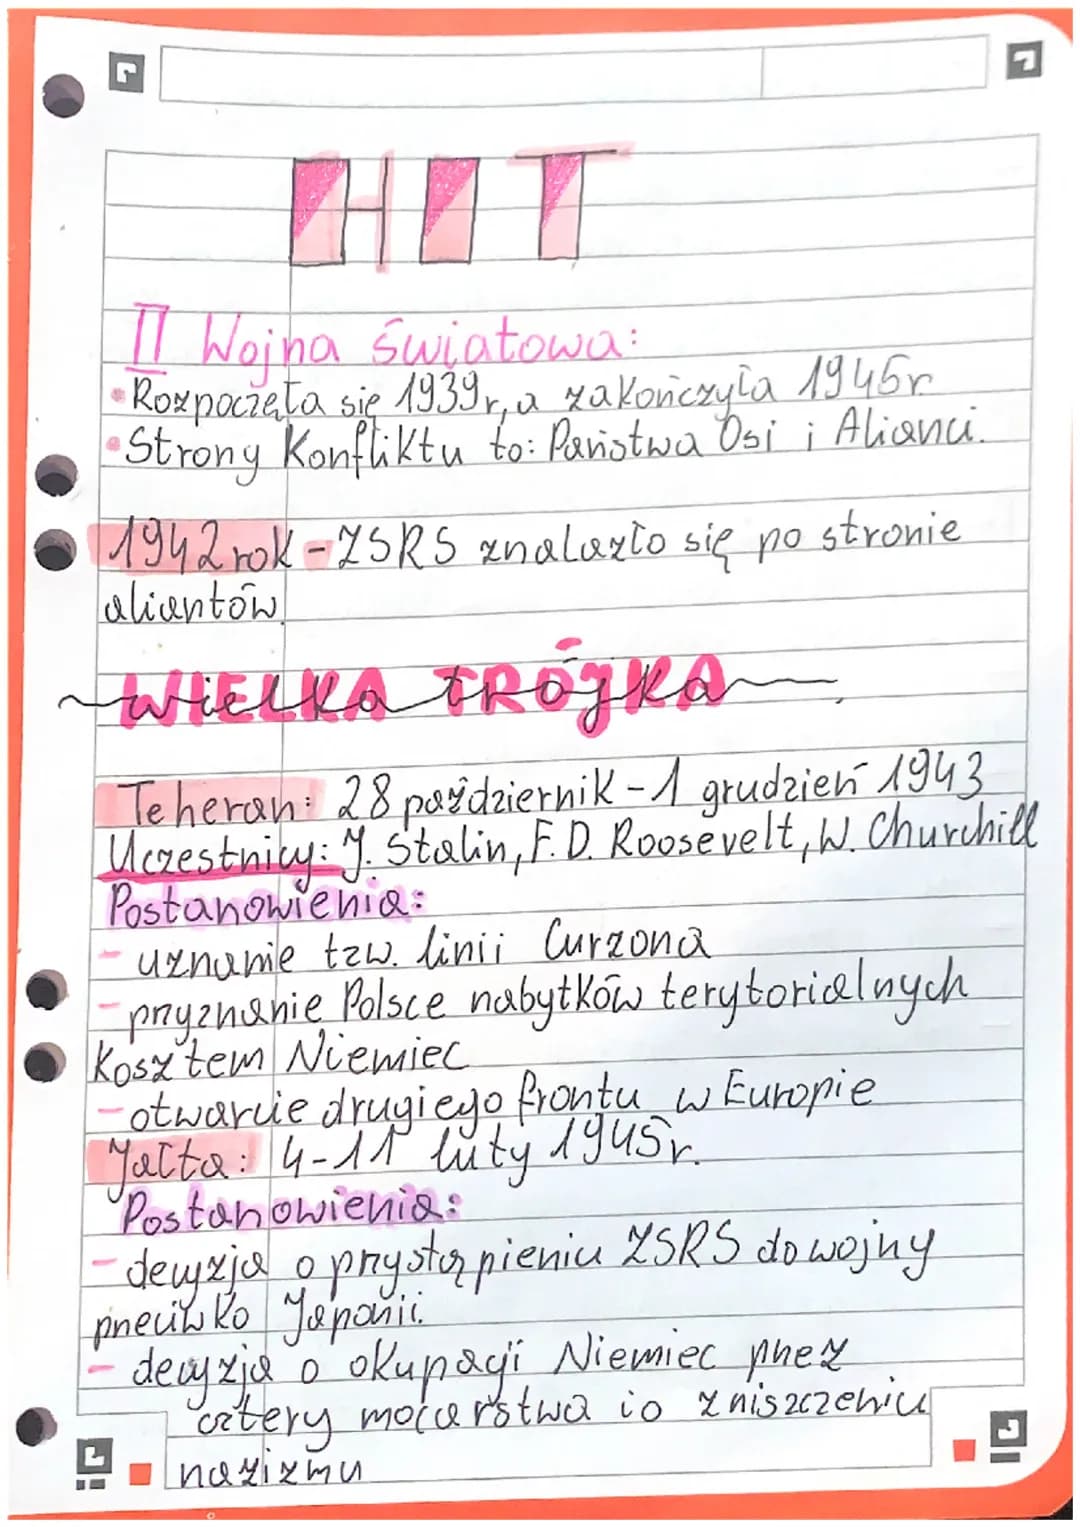 HIT
II Wojna światowa:
Rozpoczęła się 1939r, a zakończyła 1945r.
Strony Konfliktu to: Państwa Osi i Alianci.
1942 rok - ZSRS znalazło się po stronie
aliantów.
WIELKA TRÓJKA
Teheran: 28 październik - 1 grudzień 1943
Uczestnicy: J. Stalin, F. D. Roosevelt, W. Churchill
Postanowienia:
- uznanie tzw. linii Curzona
- przyznanie Polsce nabytków terytorialnych
kosztem Niemiec
- otwarcie drugiego frontu w Europie
Jałta: 4-11 luty 1945r.
Postanowienia:
- decyzja o przystąpieniu ZSRS do wojny
przeciwko Japonii.
- decyzja o okupacji Niemiec przez
cztery mocarstwa i o zniszczeniu
nazizmu